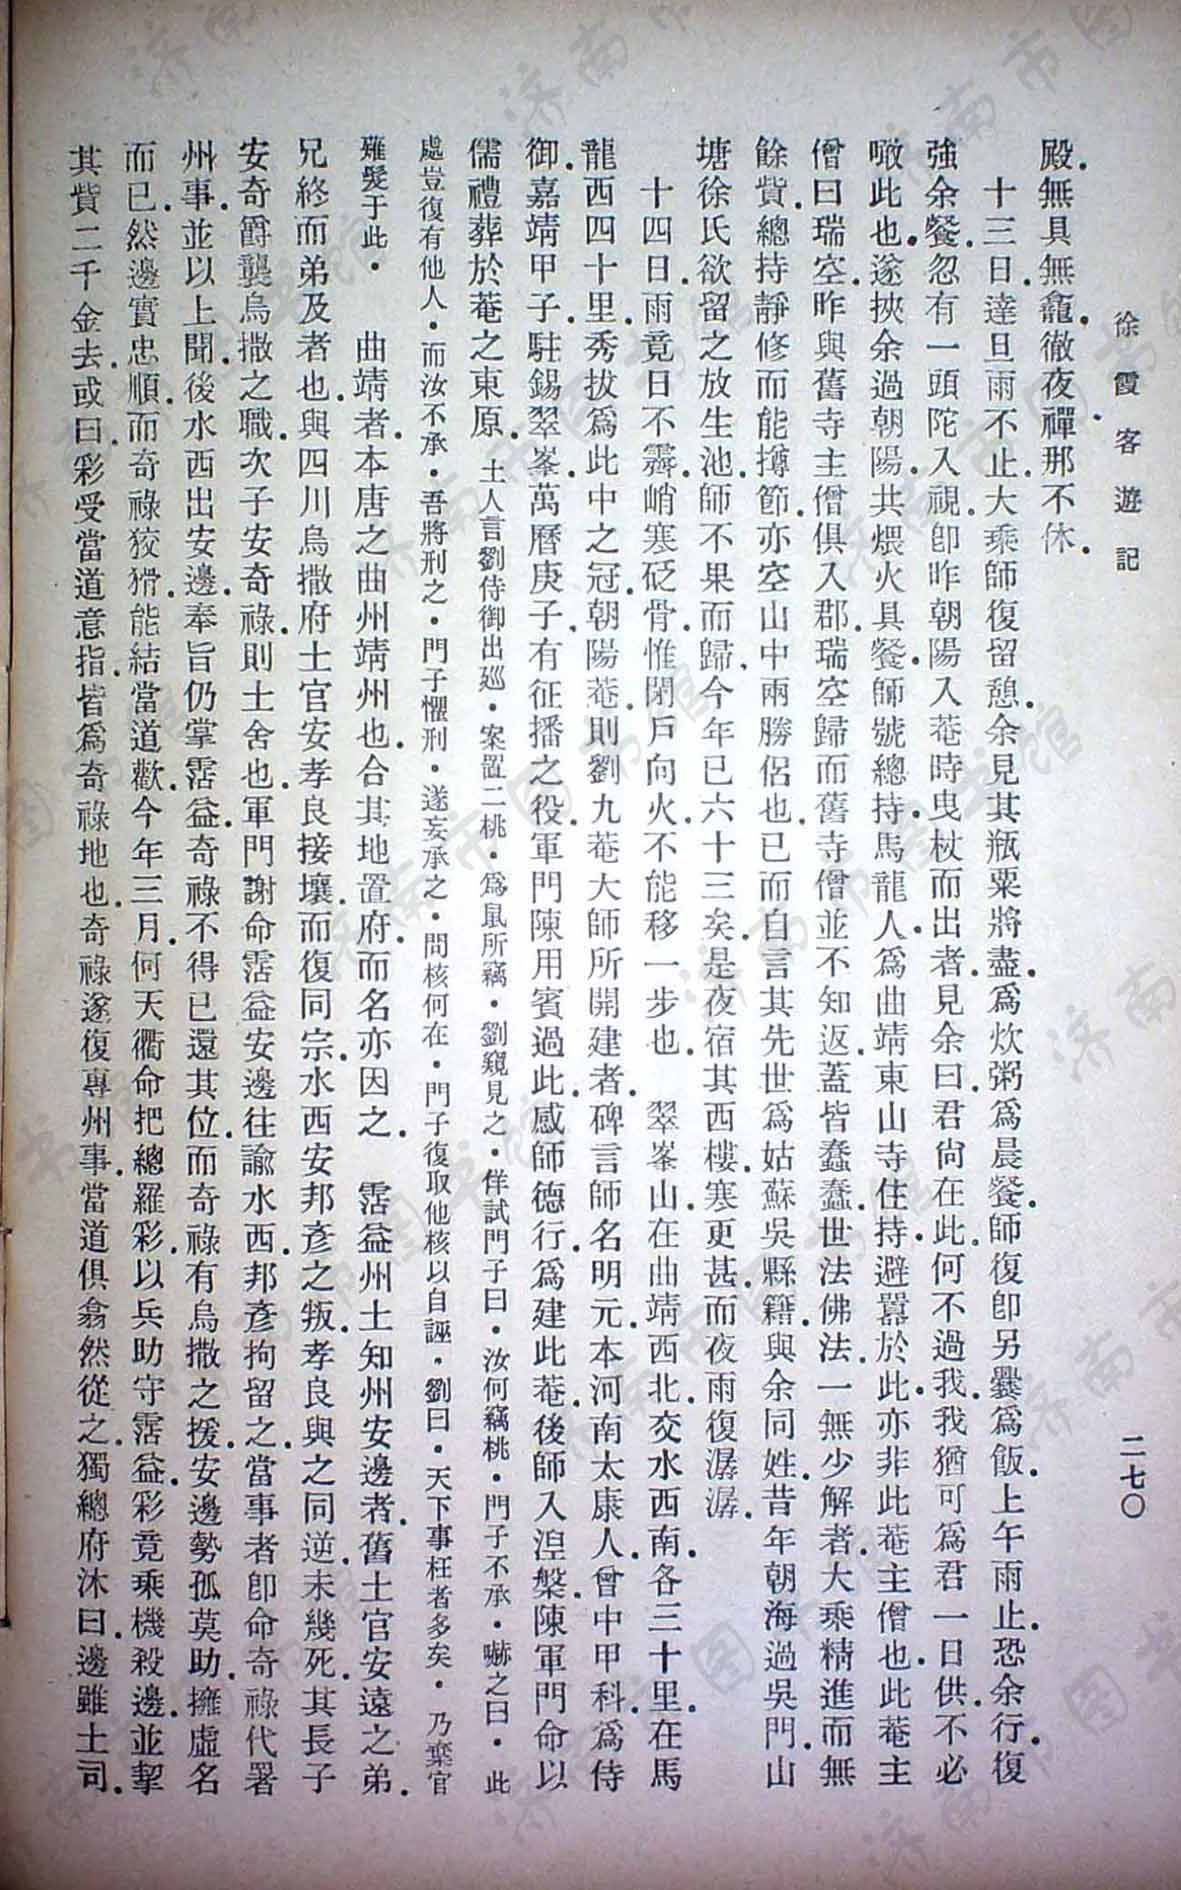 徐霞客遊記
二七〇
殿.無具無龕.徹夜禪那不休.
十三日.達旦雨不止.大乘師復留憩.余見其瓶粟將盡.爲炊粥爲晨餐.師復卽另爨爲飯.上午雨止.恐余行.復
強余餐.忽有一頭陀入視.卽昨朝陽入菴時曳杖而出者.見余曰.君尙在此.何不過我.我猶可爲君一日供.不必
噉此也.遂挾余過朝陽.共煨火具餐.師號總持.馬龍人.爲曲靖東山寺住持.避囂於此.亦非此菴主僧也.此菴主
僧曰瑞空.昨與舊寺主僧俱入郡.瑞空歸而舊寺僧並不知返.蓋皆蠢蠢.世法佛法.一無少解者.大乘精進而無
餘貲.總持靜修而能撙節.亦空山中兩勝侶也.已而自言其先世爲姑蘇吳縣籍.與余同姓.昔年朝海過吳門.山
塘徐氏欲留之放生池.師不果而歸.今年已六十三矣.是夜宿其西樓.寒更甚.而夜雨復潺潺.
十四日.雨竟日不霽.峭寒砭骨.惟閉戶向火.不能移一步也.　翠峯山.在曲靖西北.交水西南.各三十里.在馬
龍西四十里.秀拔爲此中之冠.朝陽菴.則劉九菴大師所開建者.碑言師名明元.本河南太康人.曾中甲科.爲侍
御.嘉靖甲子.駐錫翠峯.萬曆庚子.有征播之役.軍門陳用賓過此.感師德行.爲建此菴.後師入涅槃.陳軍門命以
儒禮葬於菴之東原.土人言劉侍御出巡．案置二桃．爲鼠所竊．劉窺見之．佯試門子曰．汝何竊桃．門子不承．嚇之曰．此
處豈復有他人．而汝不承．吾將刑之．門子懼刑．遂妄承之．問核何在．門子復取他核以自誣．劉曰．天下事枉者多矣．乃棄官
薙髮于此．　曲靖者.本唐之曲州靖州也.合其地置府.而名亦因之.　霑益州土知州安邊者.舊土官安遠之弟.
兄終而弟及者也.與四川烏撒府土官安孝良接壤.而復同宗.水西安邦彥之叛.孝良與之同逆.未幾死.其長子
安奇爵襲烏撒之職.次子安奇祿.則土舍也.軍門謝命霑益安邊往諭水西.邦彥拘留之.當事者卽命奇祿代署
州事.並以上聞.後水西出安邊.奉旨仍掌霑益.奇祿不得已還其位.而奇祿有烏撒之援.安邊勢孤莫助.擁虛名
而已.然邊實忠順.而奇祿狡猾.能結當道歡.今年三月.何天衢命把總羅彩.以兵助守霑益.彩竟乘機殺邊.並挈
其貲二千金去.或曰.彩受當道意指.皆爲奇祿地也.奇祿遂復專州事.當道俱翕然從之.獨總府沐曰.邊雖土司.